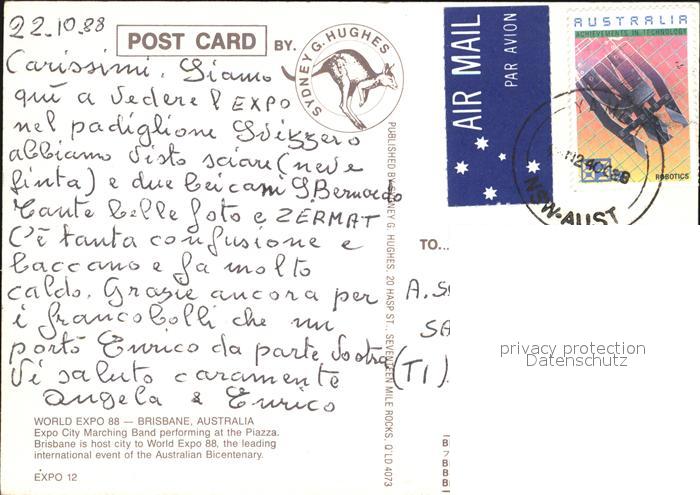 22.10.88
POST CARD BY.
SYDNEY G. HUGHES
Carissimi, Siamo
qui a vedere l'EXPO
nel padiglione Svizzero
abbiamo visto sciare (neve
finta) e due bei cani S. Bernardo
tante belle foto e ZERMAT
C'è tanta confusione e
baccano e fa molto
caldo. Grazie ancora per
i francobolli che mi
portò Enrico da parte Vostra
Vi saluto caramente
Angela & Enrico
WORLD EXPO 88 — BRISBANE, AUSTRALIA
Expo City Marching Band performing at the Piazza.
Brisbane is host city to World Expo 88, the leading
international event of the Australian Bicentenary.
EXPO 12
PUBLISHED BY SYDNEY G. HUGHES, 20 HASP ST., SEVENTEEN MILE ROCKS, Q'LD 4073
AIR MAIL
PAR AVION
AUSTRALIA
ACHIEVEMENTS IN TECHNOLOGY
ROBOTICS
NSW-AUST
TO...
A. S
SA
(TI)
privacy protection
Datenschutz